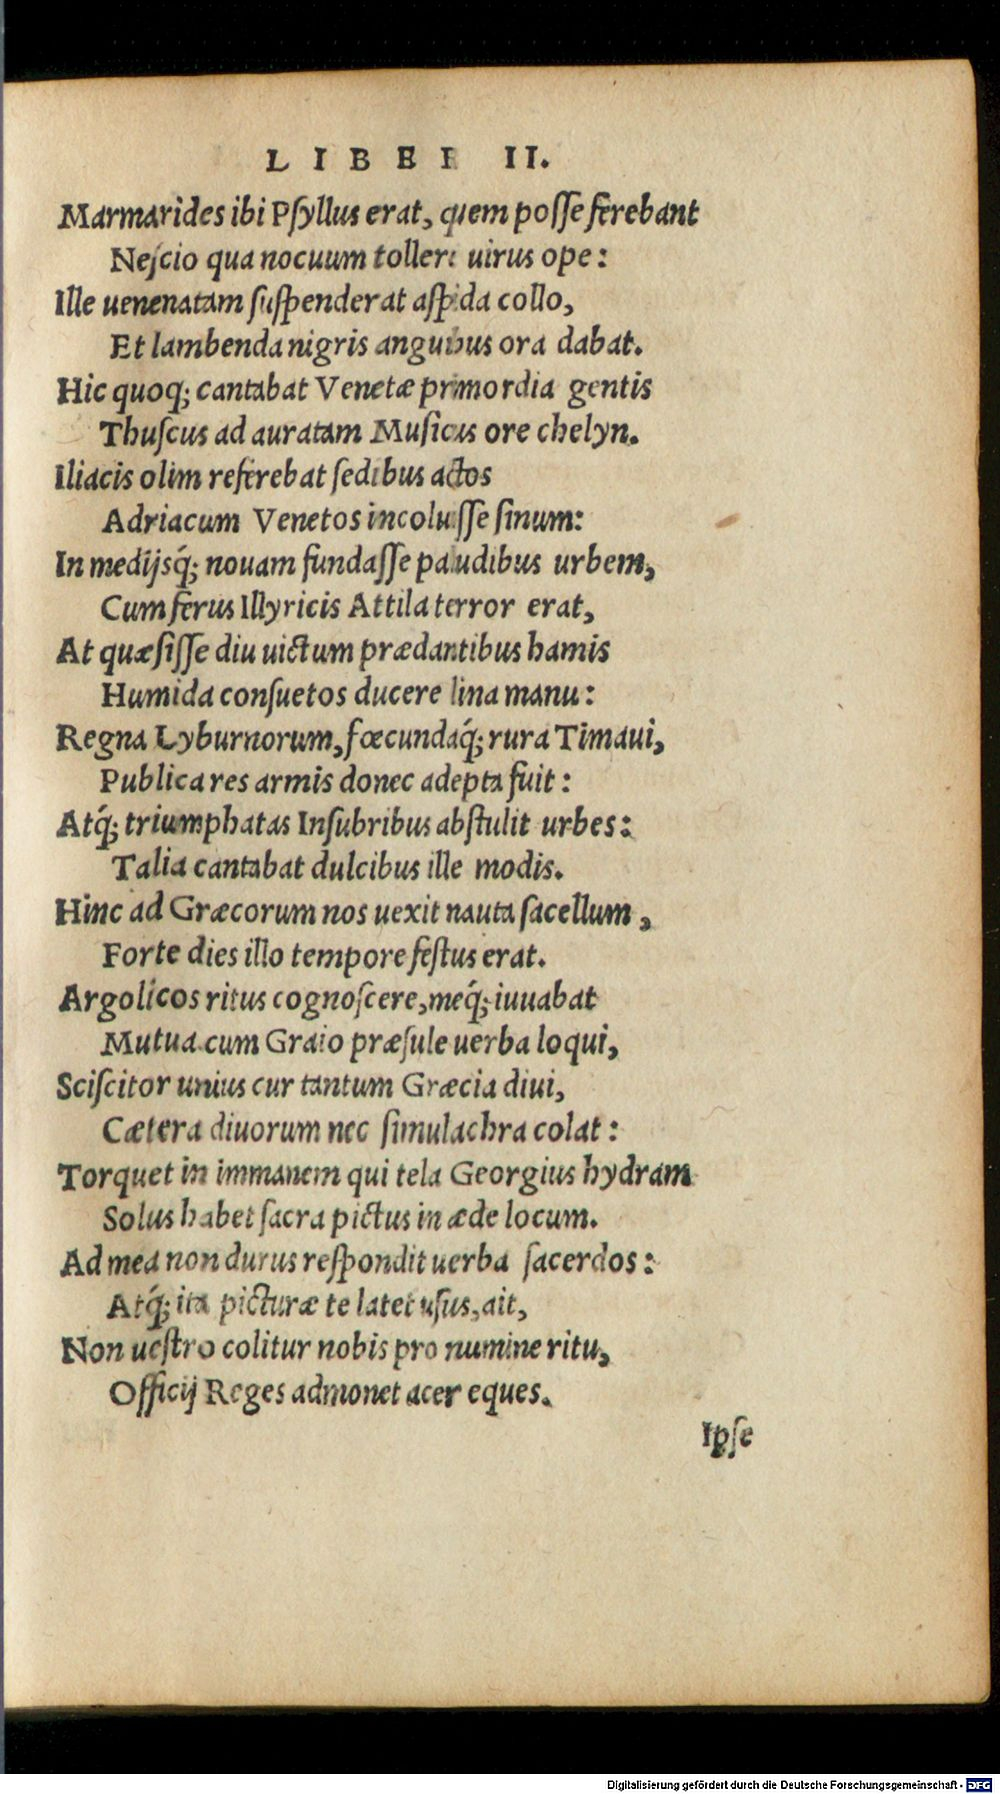 LIBER II.
Marmarides ibi Pſyllus erat, quem poſſe ferebant
Neſcio qua nocuum tollere uirus ope:
Ille uenenatam ſuſpenderat aſpida collo,
Et lambenda nigris anguibus ora dabat.
Hic quoq; cantabat Venetæ primordia gentis
Thuſcus ad auratam Muſicus ore chelyn.
Iliacis olim referebat ſedibus actos
Adriacum Venetos incoluiſſe ſinum:
In medijsq́; nouam fundaſſe paludibus urbem,
Cum ferus Illyricis Attila terror erat,
At quæſiſſe diu uictum prædantibus hamis
Humida conſuetos ducere lina manu:
Regna Lyburnorum, fœcundaq́; rura Timaui,
Publica res armis donec adepta fuit:
Atq́; triumphatas Inſubribus abſtulit urbes:
Talia cantabat dulcibus ille modis.
Hinc ad Græcorum nos uexit nauta ſacellum,
Forte dies illo tempore feſtus erat.
Argolicos ritus cognoſcere, meq́; iuuabat
Mutua cum Graio præſule uerba loqui,
Sciſcitor unius cur tantum Græcia diui,
Cætera diuorum nec ſimulachra colat:
Torquet in immanem qui tela Georgius hydram
Solus habet ſacra pictus in æde locum.
Ad mea non durus reſpondit uerba ſacerdos:
Atq́; ita picturæ te latet uſus, ait,
Non ueſtro colitur nobis pro numine ritu,
Officij Reges admonet acer eques.
Ipſe
Digitalisierung gefördert durch die Deutsche Forschungsgemeinschaft - DFG